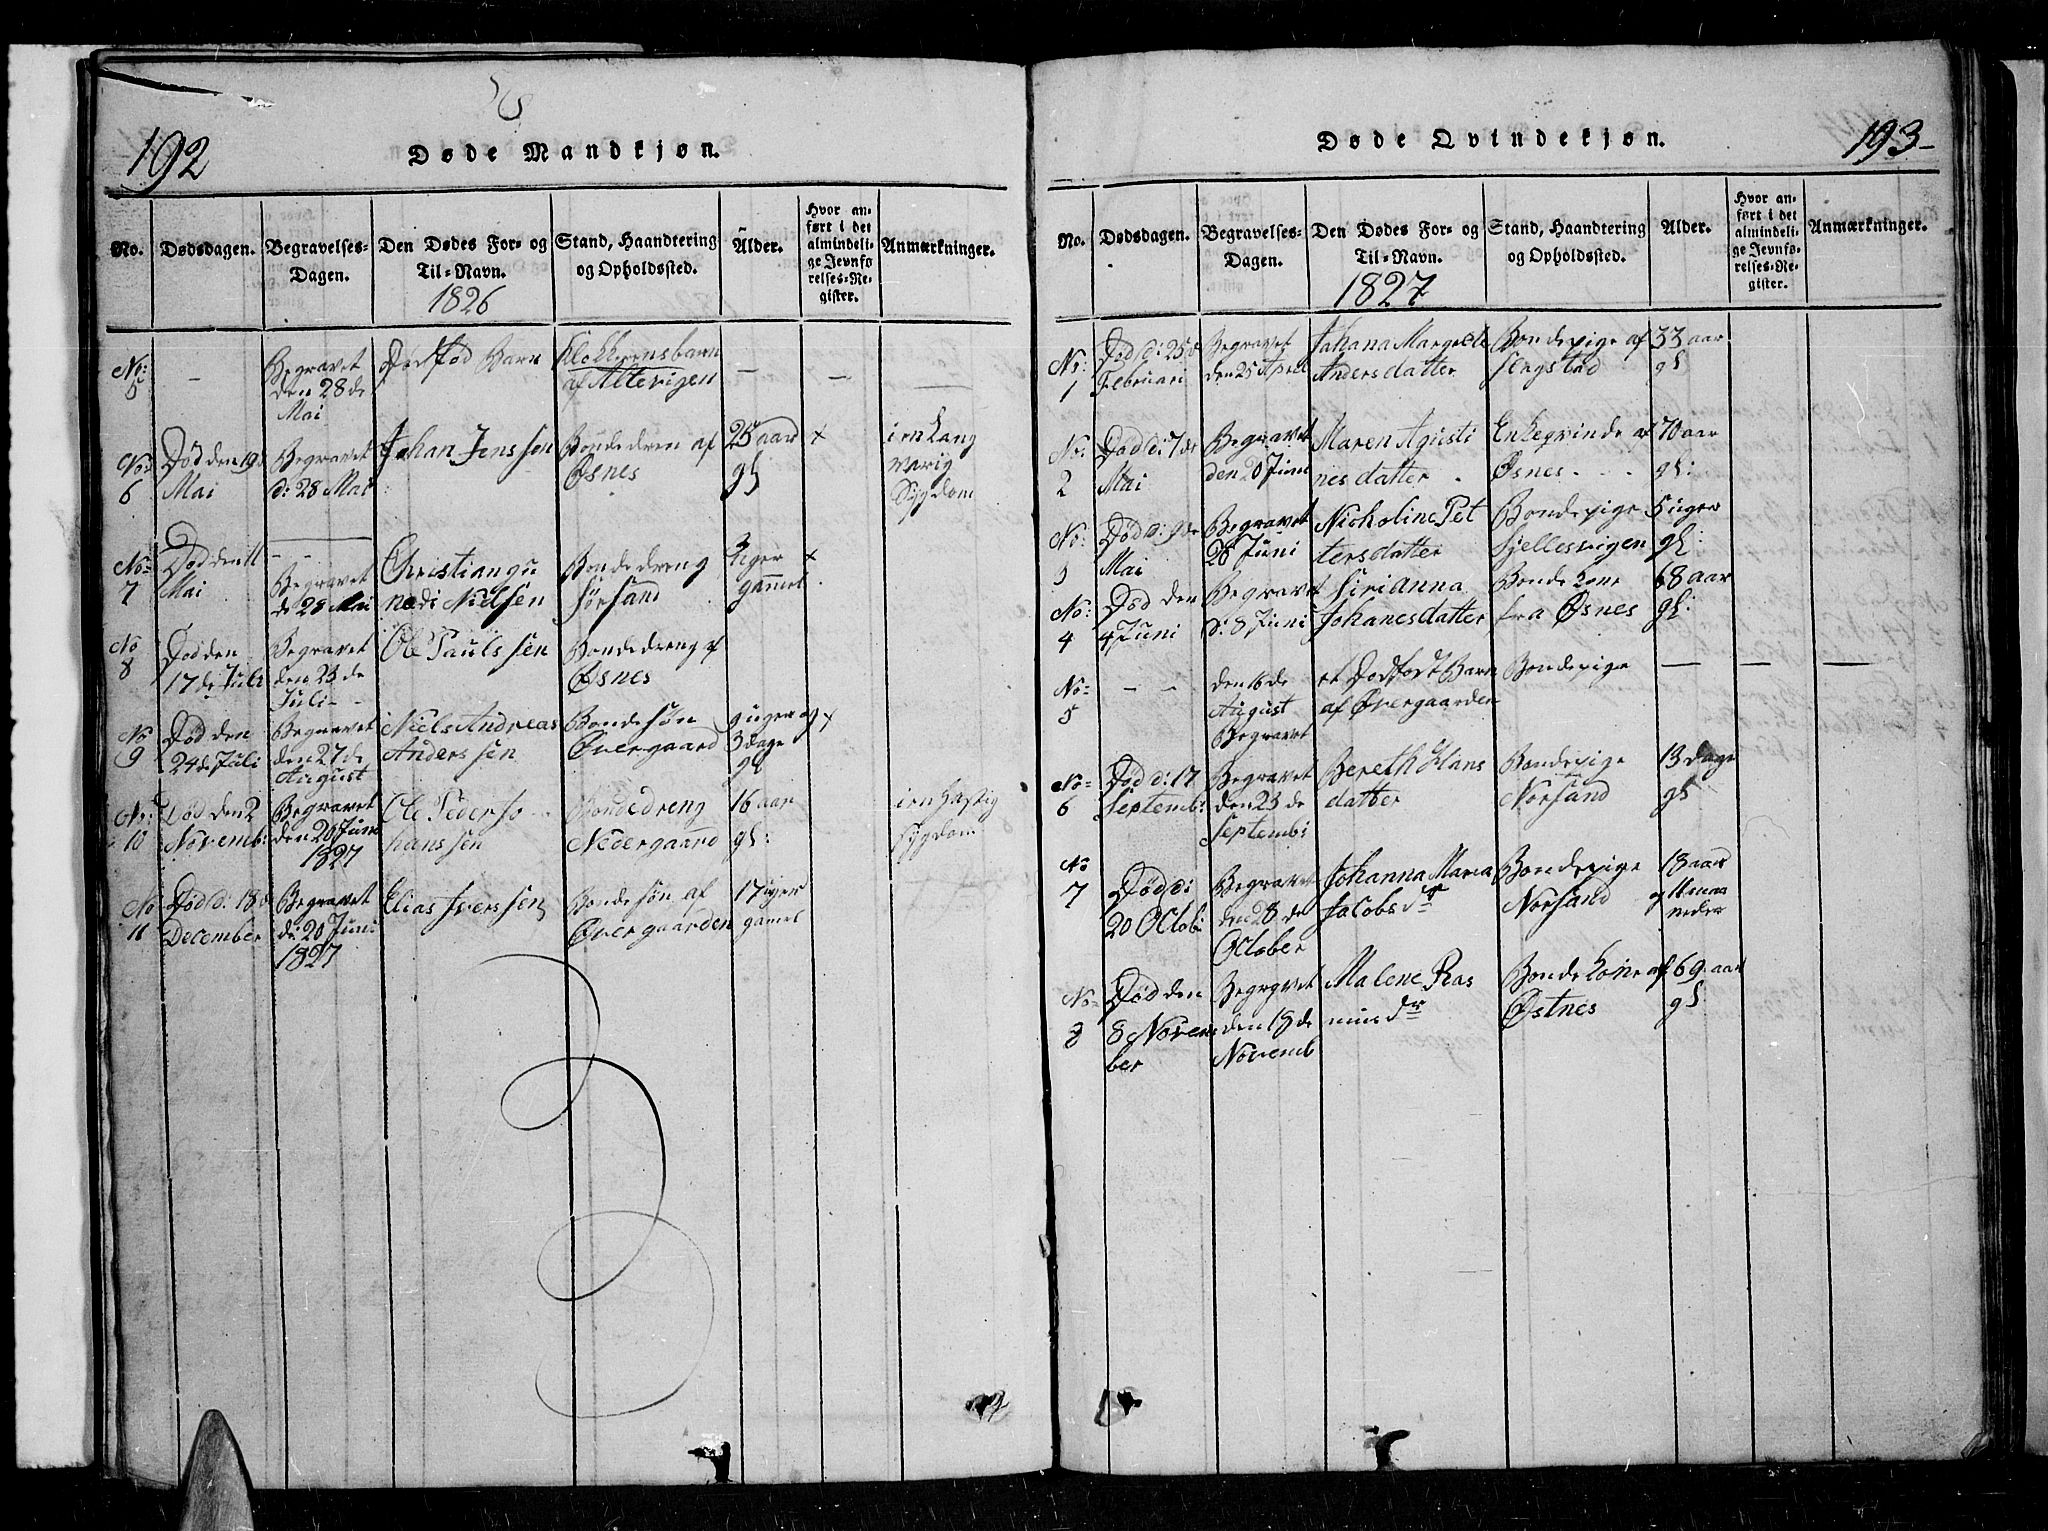 192
Døde Mandkjøn.
No.
Dødsdagen.
Begravelses-
Dagen.
Den Dødes For- og
Til-Navn.
1826
Stand, Haandtering
og Opholdssted.
Alder.
Hvor an-
ført i det
almindeli-
ge Jevnfø-
relses-Re-
gister.
Anmærkninger.
No:
5
—
Begravet
den 28 de
Mai
Dødfød Barn
Klokkerens barn
af Altevigen
—
—
No:
6
Død den 19
Mai
Begravet
d: 28 Mai
Johan Jenssen
Bondedren af
Øsnes
25 aar
gl
+
i en Lang
varig
Sygdom
No:
7
Død den 11
Mai
Begravet
d 28 Mai
Christian
Nielsen
Bondedreng
Sørsand
3
uger
gammel
+
No
8
Død den
17 de Juli
Begravet
den 23 de
Juli
Ole Paulssen
Bondedreng af
Øsnes
No
9
Død den
24 de Juli
Begravet
den 27 de
August
Niels Andreas
Anderssen
Bondesøn
Øvergaard
9 uger og
3 dage
gl
+
No:
10
Død den 2
Novemb:
Begravet
den 20 Juni
1827
Ole Pederso
hanssen
Bondedreng
Nedergaard
16 aar
gl:
i en Hastig
Sygdom
No
11
Død d: 18
December
Begravet
d: 20 Juni
1827
Elias Iverssen
Bondesøn af
Øvergaarden
17 uger
gamel
193-
Døde Qvindekjøn.
No.
Dødsdagen.
Begravelses-
Dagen.
Den Dødes For- og
Til-Navn.
1827
Stand, Haandtering
og Opholdssted.
Alder.
Hvor an-
ført i det
almindeli-
ge Jevnfø-
relses-Re-
gister.
Anmærkninger.
No:
1
Død d: 25
Februari
Begravet
den 25 April
Johana Margrete
Andersdatter
Bondepige af
Sengstad
33 aar
gl
No:
2
Død d: 7 de
Mai
Begravet
den 20 Juni
Maren Agusti
nesdatter
Enkeqvinde af
Øsnes
70 aar
gl:
No:
3
Død d: 9 de
Mai
Begravet
28 Juni
Nicholine Pet
tersdatter
Bondepige
Sjellesvigen
5 uger
gl:
No:
4
Død den
4 Juni
Begravet
d: 8 Juni
Sirianna
Johanesdatter
Bondekone
fra Øsnes
68 aar
gl:
No:
5
— —
den 16 de
August
Begravet
et Dødfødt Barn
af Øvergaarden
Bondepige
—
—
—
No:
6
Død d: 17
Septemb:
Begravet
den 23 de
Septemb:
Bereth Hans
datter
Bondepige
Norsand
13 Dage
gl
No
7
Død d:
20 Octob:
Begravet
den 28 de
October
Johanna Maria
Jacobs dr
Bondepige
Norsand
18 aar
og 11 maa
neder
No:
8
Død den
8 Novem
ber
Begravet
den 18 de
Novemb
Malene Ras
mus dr
Bonde kone af
Østnes
69 aar
gl